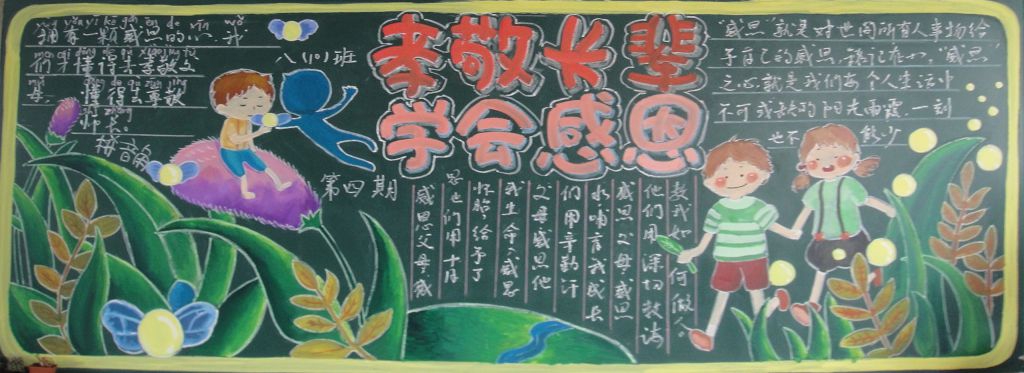 拥有一颗感恩的心,我
们才懂得去孝敬父
母,懂得去尊敬
师长。
拼音角
八(10)班
孝敬长辈
学会感恩
第四期
感恩父母,感
恩他们用十月
怀胎给予了
我生命,感恩
父母感恩他
们用辛勤汗
水哺育我成长
感恩父母感恩
他们用深切教诲
教我如何做人。
"感恩"就是对世间所有人事物给
予自己的感恩,铭记在心。"感恩"
之心就是我们每个人生活中
不可或缺的阳光雨露,一刻
也不能少